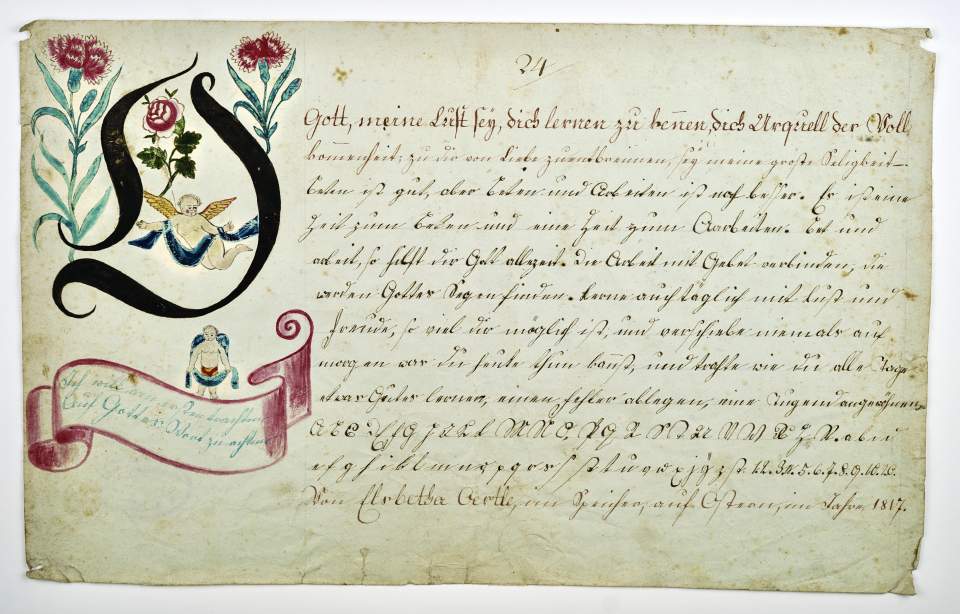 24
O
Gott, meine Lust seÿ, dich lernen zu kennen, dich Urquell der Voll
kommenheit; zu dir von Liebe zu entbrennen, seÿ meine große Seligkeit
Beten ist gut, aber Beten und Arbeiten ist noch besser. Es ist eine
Zeit zum Beten und eine Zeit zum Aarbeiten. Bet und
arbeit, so hilft dir Gott allezeit. Die Arbeit mit Gebet verbinden, die
werden Gottes Segen finden. Lerne auch täglich mit Lust und
Freude, so viel dir möglich ist, und verschiebe niemals auf
morgen was du heute thun kanst, und trachte wie du alle Tage
etwas Gutes lernen, einen Fehler ablegen, eine Tugend angewöhnen
a b c d
e f g h i k l m n o p q r s s t u v w x y z 1. 2. 3. 4. 5. 6. 7. 8. 9. 10.
Von Elsbetha Oertle, im Speicher, auf Ostern, im Jahre 1817.
Ich will
Auf Gottes Wort zu achten